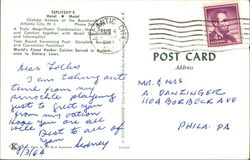 TEPLITZKY'S
Hotel Motel
Chelsea Avenue at the Boardwalk
Atlantic City, N. J.
A Truly Magnificent Combination Hotel
and Comfort together with Motel
and Informality
Year Round Swimming Pool, Complete
and Convention Facilities
World's Finest Kosher Cuisine Served in
to Dietary Laws
ATLANTIC CITY
POST CARD
Address
Dear Folks
I am taking out
time from my
pinochle playing
just to greet you
from my vacation
hope you are all
well. Best to all
of you
Sidney
9/3/64
K
MR & MRS
A. DANZINGER
1104 BORBECK AVE
PHILA. PA